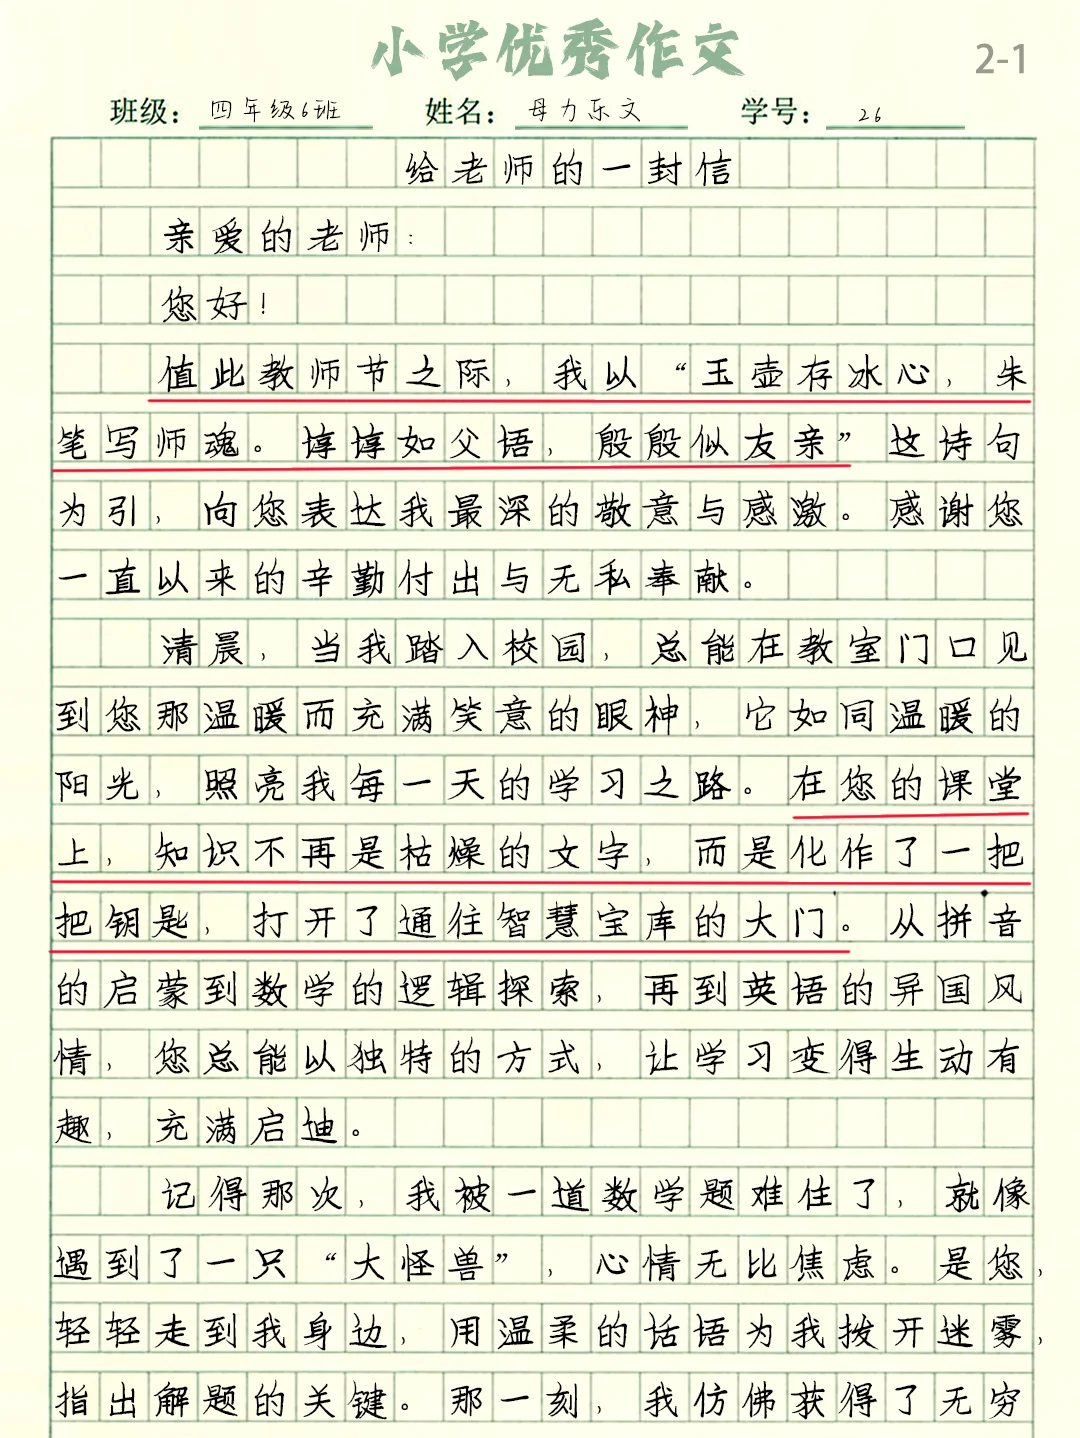 小学优秀作文
2-1
班级：四年级6班 姓名：母力乐文 学号：26
给老师的一封信
亲爱的老师：
您好！
值此教师节之际，我以“玉壶存冰心，朱
笔写师魂。谆谆如父语，殷殷似友亲”这诗句
为引，向您表达我最深的敬意与感激。感谢您
一直以来的辛勤付出与无私奉献。
清晨，当我踏入校园，总能在教室门口见
到您那温暖而充满笑意的眼神，它如同温暖的
阳光，照亮我每一天的学习之路。在您的课堂
上，知识不再是枯燥的文字，而是化作了一把
把钥匙，打开了通往智慧宝库的大门。从拼音
的启蒙到数学的逻辑探索，再到英语的异国风
情，您总能以独特的方式，让学习变得生动有
趣，充满启迪。
记得那次，我被一道数学题难住了，就像
遇到了一只“大怪兽”，心情无比焦虑。是您，
轻轻走到我身边，用温柔的话语为我拨开迷雾，
指出解题的关键。那一刻，我仿佛获得了无穷